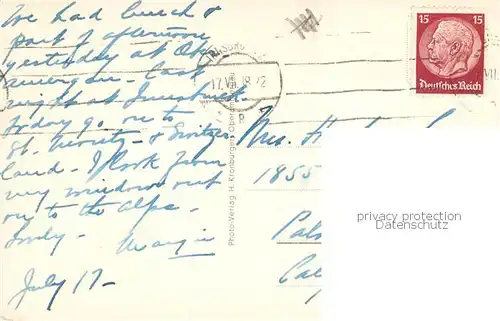 We had lunch &
part of afternoon
yesterday at Ober
amergau. Last
night at Innsbruck.
Today go on to
St. Moritz & Switzer
land. I look from
my window out
on to the Alps.
Lovely. Margie
July 17-
17.VII. 18-22
15 15
Deutsches Reich
Photo-Verlag H. Kronburger, Oberam
Mrs.
1855
Pals
Cal
privacy protection
Datenschutz